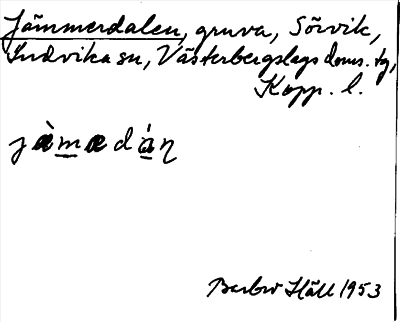 Jämmerdalen, gruva, Sörvik,
Ludvika sn, Västerbergslags doms. tg,
Kopp. l.
jæ̀mædȧṇ
Barbro Häll 1953